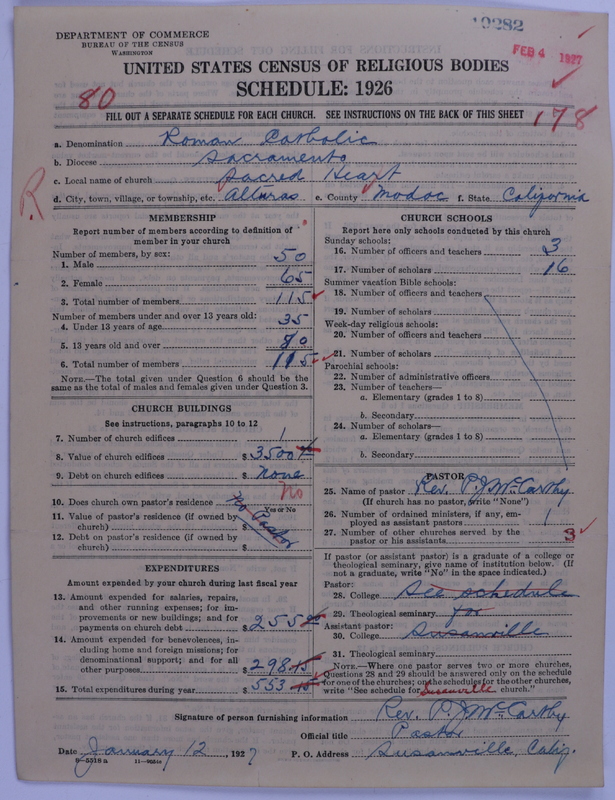 10282
DEPARTMENT OF COMMERCE
BUREAU OF THE CENSUS
WASHINGTON
FEB 4 1927
UNITED STATES CENSUS OF RELIGIOUS BODIES
SCHEDULE: 1926
80
FILL OUT A SEPARATE SCHEDULE FOR EACH CHURCH. SEE INSTRUCTIONS ON THE BACK OF THIS SHEET
178
a. Denomination Roman Catholic
b. Diocese Sacramento
c. Local name of church Sacred Heart
R
d. City, town, village, or township, etc. Alturas e. County Modoc f. State California
MEMBERSHIP
Report number of members according to definition of
member in your church
Number of members, by sex:
1. Male 50
2. Female 65
3. Total number of members 115
Number of members under and over 13 years old:
4. Under 13 years of age 35
5. 13 years old and over 80
6. Total number of members 115
NOTE.—The total given under Question 6 should be
the same as the total of males and females given under Question 3.
CHURCH BUILDINGS
See instructions, paragraphs 10 to 12
7. Number of church edifices 1
8. Value of church edifices $ 3500
9. Debt on church edifices $ None
No
10. Does church own pastor's residence No Pastor
Yes or No
11. Value of pastor's residence (if owned by
church) $
12. Debt on pastor's residence (if owned by
church) $
EXPENDITURES
Amount expended by your church during last fiscal year
13. Amount expended for salaries, repairs,
and other running expenses; for im-
provements or new buildings; and for
payments on church debt $ 255
14. Amount expended for benevolences, in-
cluding home and foreign missions; for
denominational support; and for all
other purposes $ 298 15
15. Total expenditures during year $ 553 15
CHURCH SCHOOLS
Report here only schools conducted by this church
Sunday schools:
16. Number of officers and teachers 3
17. Number of scholars 16
Summer vacation Bible schools:
18. Number of officers and teachers
19. Number of scholars
Week-day religious schools:
20. Number of officers and teachers
21. Number of scholars
Parochial schools:
22. Number of administrative officers
23. Number of teachers—
a. Elementary (grades 1 to 8)
b. Secondary
24. Number of scholars—
a. Elementary (grades 1 to 8)
b. Secondary
PASTOR
25. Name of pastor Rev. P. J. McCarthy
(If church has no pastor, write "None")
26. Number of ordained ministers, if any, em-
ployed as assistant pastors 1
27. Number of other churches served by the
pastor or his assistants 3
If pastor (or assistant pastor) is a graduate of a college or
theological seminary, give name of institution below. (If
not a graduate, write "No" in the space indicated.)
Pastor:
28. College See schedule
29. Theological seminary for
Assistant pastor:
30. College Susanville
31. Theological seminary
NOTE.—Where one pastor serves two or more churches,
Questions 28 and 29 should be answered only on the schedule
for one of the churches; on the schedules for the other churches,
write "See schedule for Susanville church."
Signature of person furnishing information Rev. P. J. McCarthy
Official title Pastor
Date January 12, 1927 P. O. Address Susanville, Calif.
8—5518 a 11—9051a